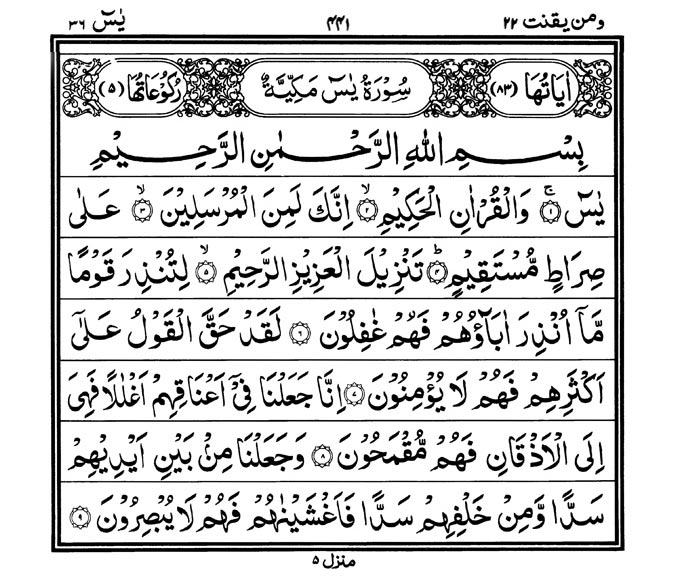 ومن يقنت ٢٢ ۴۴۱ يٰسٓ ٣٦
اٰيَاتُهَا (٨٣) سُوْرَةُ يٰسٓ مَكِّيَّةٌ رُكُوْعَاتُهَا (٥)
بِسْمِ اللّٰهِ الرَّحْمٰنِ الرَّحِيْمِ
يٰسٓ ۚ﴿١﴾ وَالْقُرْاٰنِ الْحَكِيْمِ ۙ﴿٢﴾ اِنَّكَ لَمِنَ الْمُرْسَلِيْنَ ۙ﴿٣﴾ عَلٰى
صِرَاطٍ مُّسْتَقِيْمٍ ؕ﴿۴﴾ تَنْزِيْلَ الْعَزِيْزِ الرَّحِيْمِ ۙ﴿٥﴾ لِتُنْذِرَ قَوْمًا
مَّاۤ اُنْذِرَ اٰبَآؤُهُمْ فَهُمْ غٰفِلُوْنَ ﴿٦﴾ لَقَدْ حَقَّ الْقَوْلُ عَلٰۤى
اَكْثَرِهِمْ فَهُمْ لَا يُؤْمِنُوْنَ ﴿٧﴾ اِنَّا جَعَلْنَا فِيْۤ اَعْنَاقِهِمْ اَغْلٰلًا فَهِىَ
اِلَى الْاَذْقَانِ فَهُمْ مُّقْمَحُوْنَ ﴿٨﴾ وَجَعَلْنَا مِنْۢ بَيْنِ اَيْدِيْهِمْ
سَدًّا وَّمِنْ خَلْفِهِمْ سَدًّا فَاَغْشَيْنٰهُمْ فَهُمْ لَا يُبْصِرُوْنَ ﴿٩﴾
منزل ٥